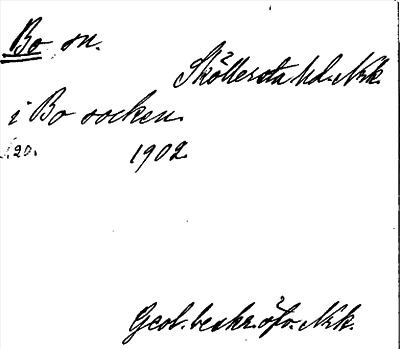 Bo sn.
Sköllersta hd. Nrk.
i Bo socken.
s. 20. 1902.
Geol. beskr. öfv. Nrk.